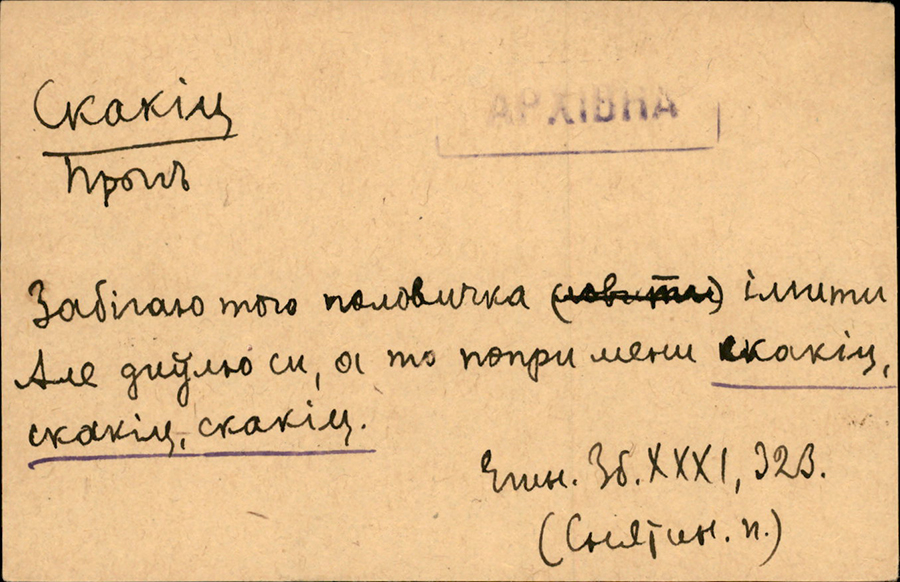 Скакіц
АРХІВНА
Прогъ
Забігаю того половичка (ловити) імити
Але диўлю си, а то попри мени скакіц,
скакіц, скакіц.
Етн. Зб. XXXI, 323.
(Снятин. п.)